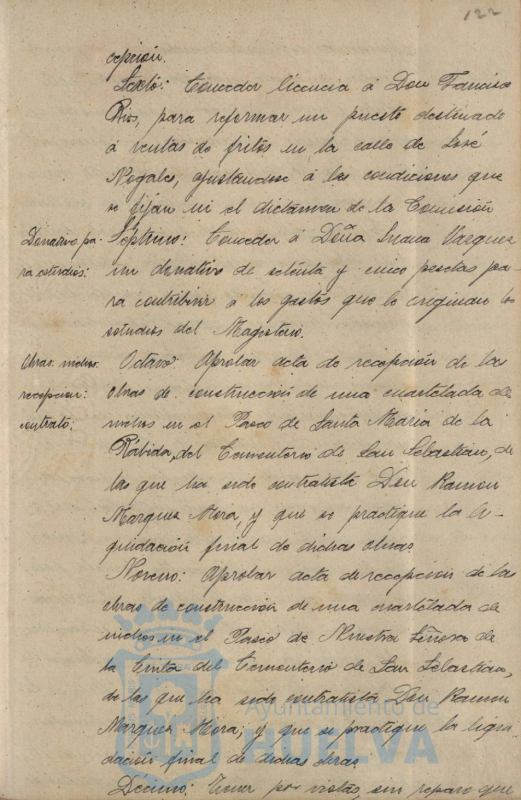 122
cepción.
Sexto: Conceder licencia á Don Francisco
Rios, para reformar un puesto destinado
á ventas de fritos en la calle de José
Nogales, ajustandose á las condiciones que
se fijan en el dictamen de la Comisión
Donativo pa-
ra estudios:
Séptimo: Conceder á Doña Juana Vazquez
un donativo de setenta y cinco pesetas pa-
ra contribuir a los gastos que le originan los
estudios del Magisterio.
Obras nichos.
recepcion:
contrato:
Octavo: Aprobar acta de recepción de las
obras de construcción de una cuartelada de
nichos en el Paseo de Santa Maria de la
Rábida, del Cementerio de San Sebastian, de
las que ha sido contratista Don Ramon
Marquez Mora, y que se practique la li-
quidación final de dichas obras.
Noveno: Aprobar acta de recepcion de las
obras de construcción de una cuartelada de
nichos en el Paseo de Nuestra Señora de
la Cinta del Cementerio de San Sebastian,
de las que ha sido contratista Don Ramon
Marquez Mora; y que se practique la liqui-
dación final de dichas obras.
Decimo: Tener por vistas, sin reparo que
Ayuntamiento de
HUELVA